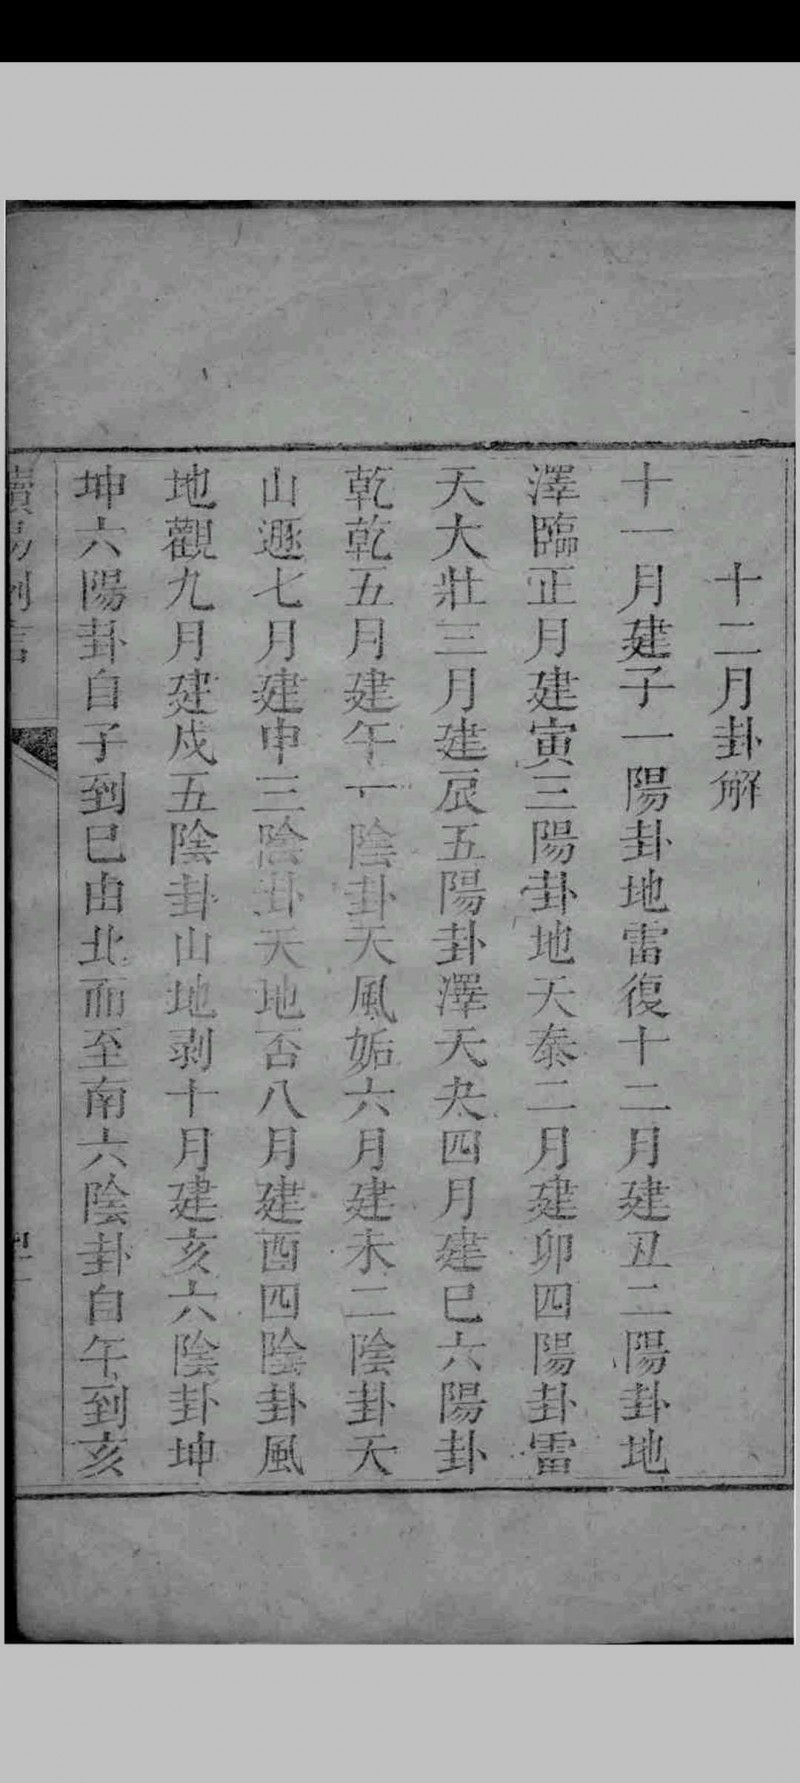 十二月卦解
十一月建子一陽卦地雷復十二月建丑二陽卦地
澤臨正月建寅三陽卦地天泰二月建卯四陽卦雷
天大壯三月建辰五陽卦澤天夬四月建巳六陽卦
乾乾五月建午一陰卦天風姤六月建未二陰卦天
山遯七月建申三陰卦天地否八月建酉四陰卦風
地觀九月建戌五陰卦山地剥十月建亥六陰卦坤
坤六陽卦自子到巳由北而至南六陰卦自午到亥